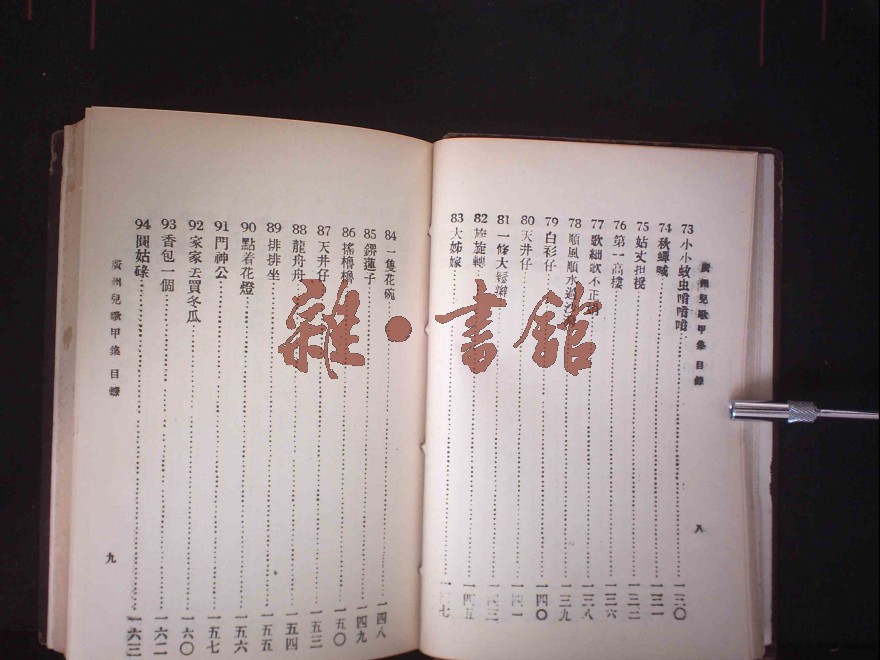 廣州兒歌甲集 目錄
73 小小蚊虫唷唷唷 一三〇
74 秋蟬喊 一三一
75 姑丈担擢 一三二
76 第一高樓 一三六
77 歌細歌不正 一三八
78 順風順水過沙 一三九
79 白衫仔 一四〇
80 天井仔 一四一
81 一條大鬆辮 一四三
82 旋旋轉 一四五
83 大姊嫁 一四七
八
84 一隻花碗 一四八
85 鎅蓮子 一四九
86 搖櫓櫓 一五〇
87 天井仔 一五三
88 龍舟舟 一五四
89 排排坐 一五五
90 點着花燈 一五六
91 門神公 一五七
92 家家去買冬瓜 一六〇
93 香包一個 一六二
94 閪姑碌 一六三
廣州兒歌甲集 目錄
九
雜·書館